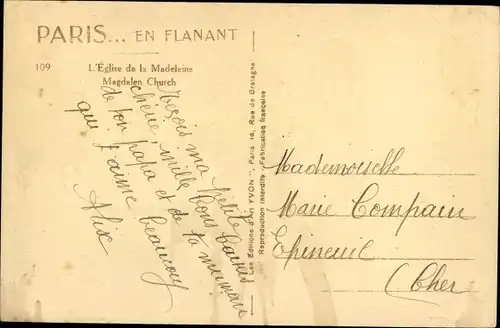 PARIS... EN FLANANT
109
L'Église de la Madeleine
Magdalen Church
Reçois ma petite
chérie mille bons baisers
de ton papa et de ta maman
qui t'aime beaucoup
Alix
Les Éditions d'Art YVON", Paris 15, Rue de Bretagne
Reproduction interdite - Fabrication française
Mademoiselle
Marie Compain
Epineuil
(Cher